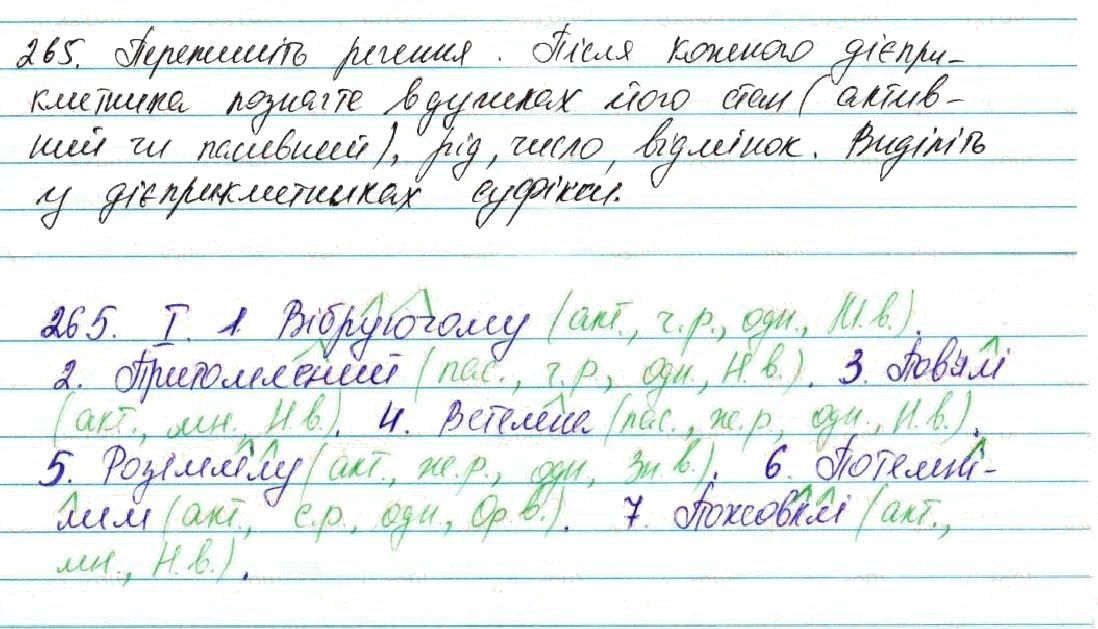 265. Перепишіть речення. Після кожного дієпри-
кметника позначте в дужках його стан (актив-
ний чи пасивний), рід, число, відмінок. Виділіть
у дієприкметниках суфікси.
265. І. 1. Вібруючому (акт., ч.р., одн., М.в.).
2. Притомлений (пас., ч.р., одн., Н.в.). 3. Пов'ялі
(акт., мн., Н.в.). 4. Встелена (пас., ж.р., одн., Н.в.).
5. Розімлілу (акт., ж.р., одн., Зн.в.). 6. Потемні-
лим (акт., с.р., одн., Ор.в.). 7. Пожовклі (акт.,
мн., Н.в.).